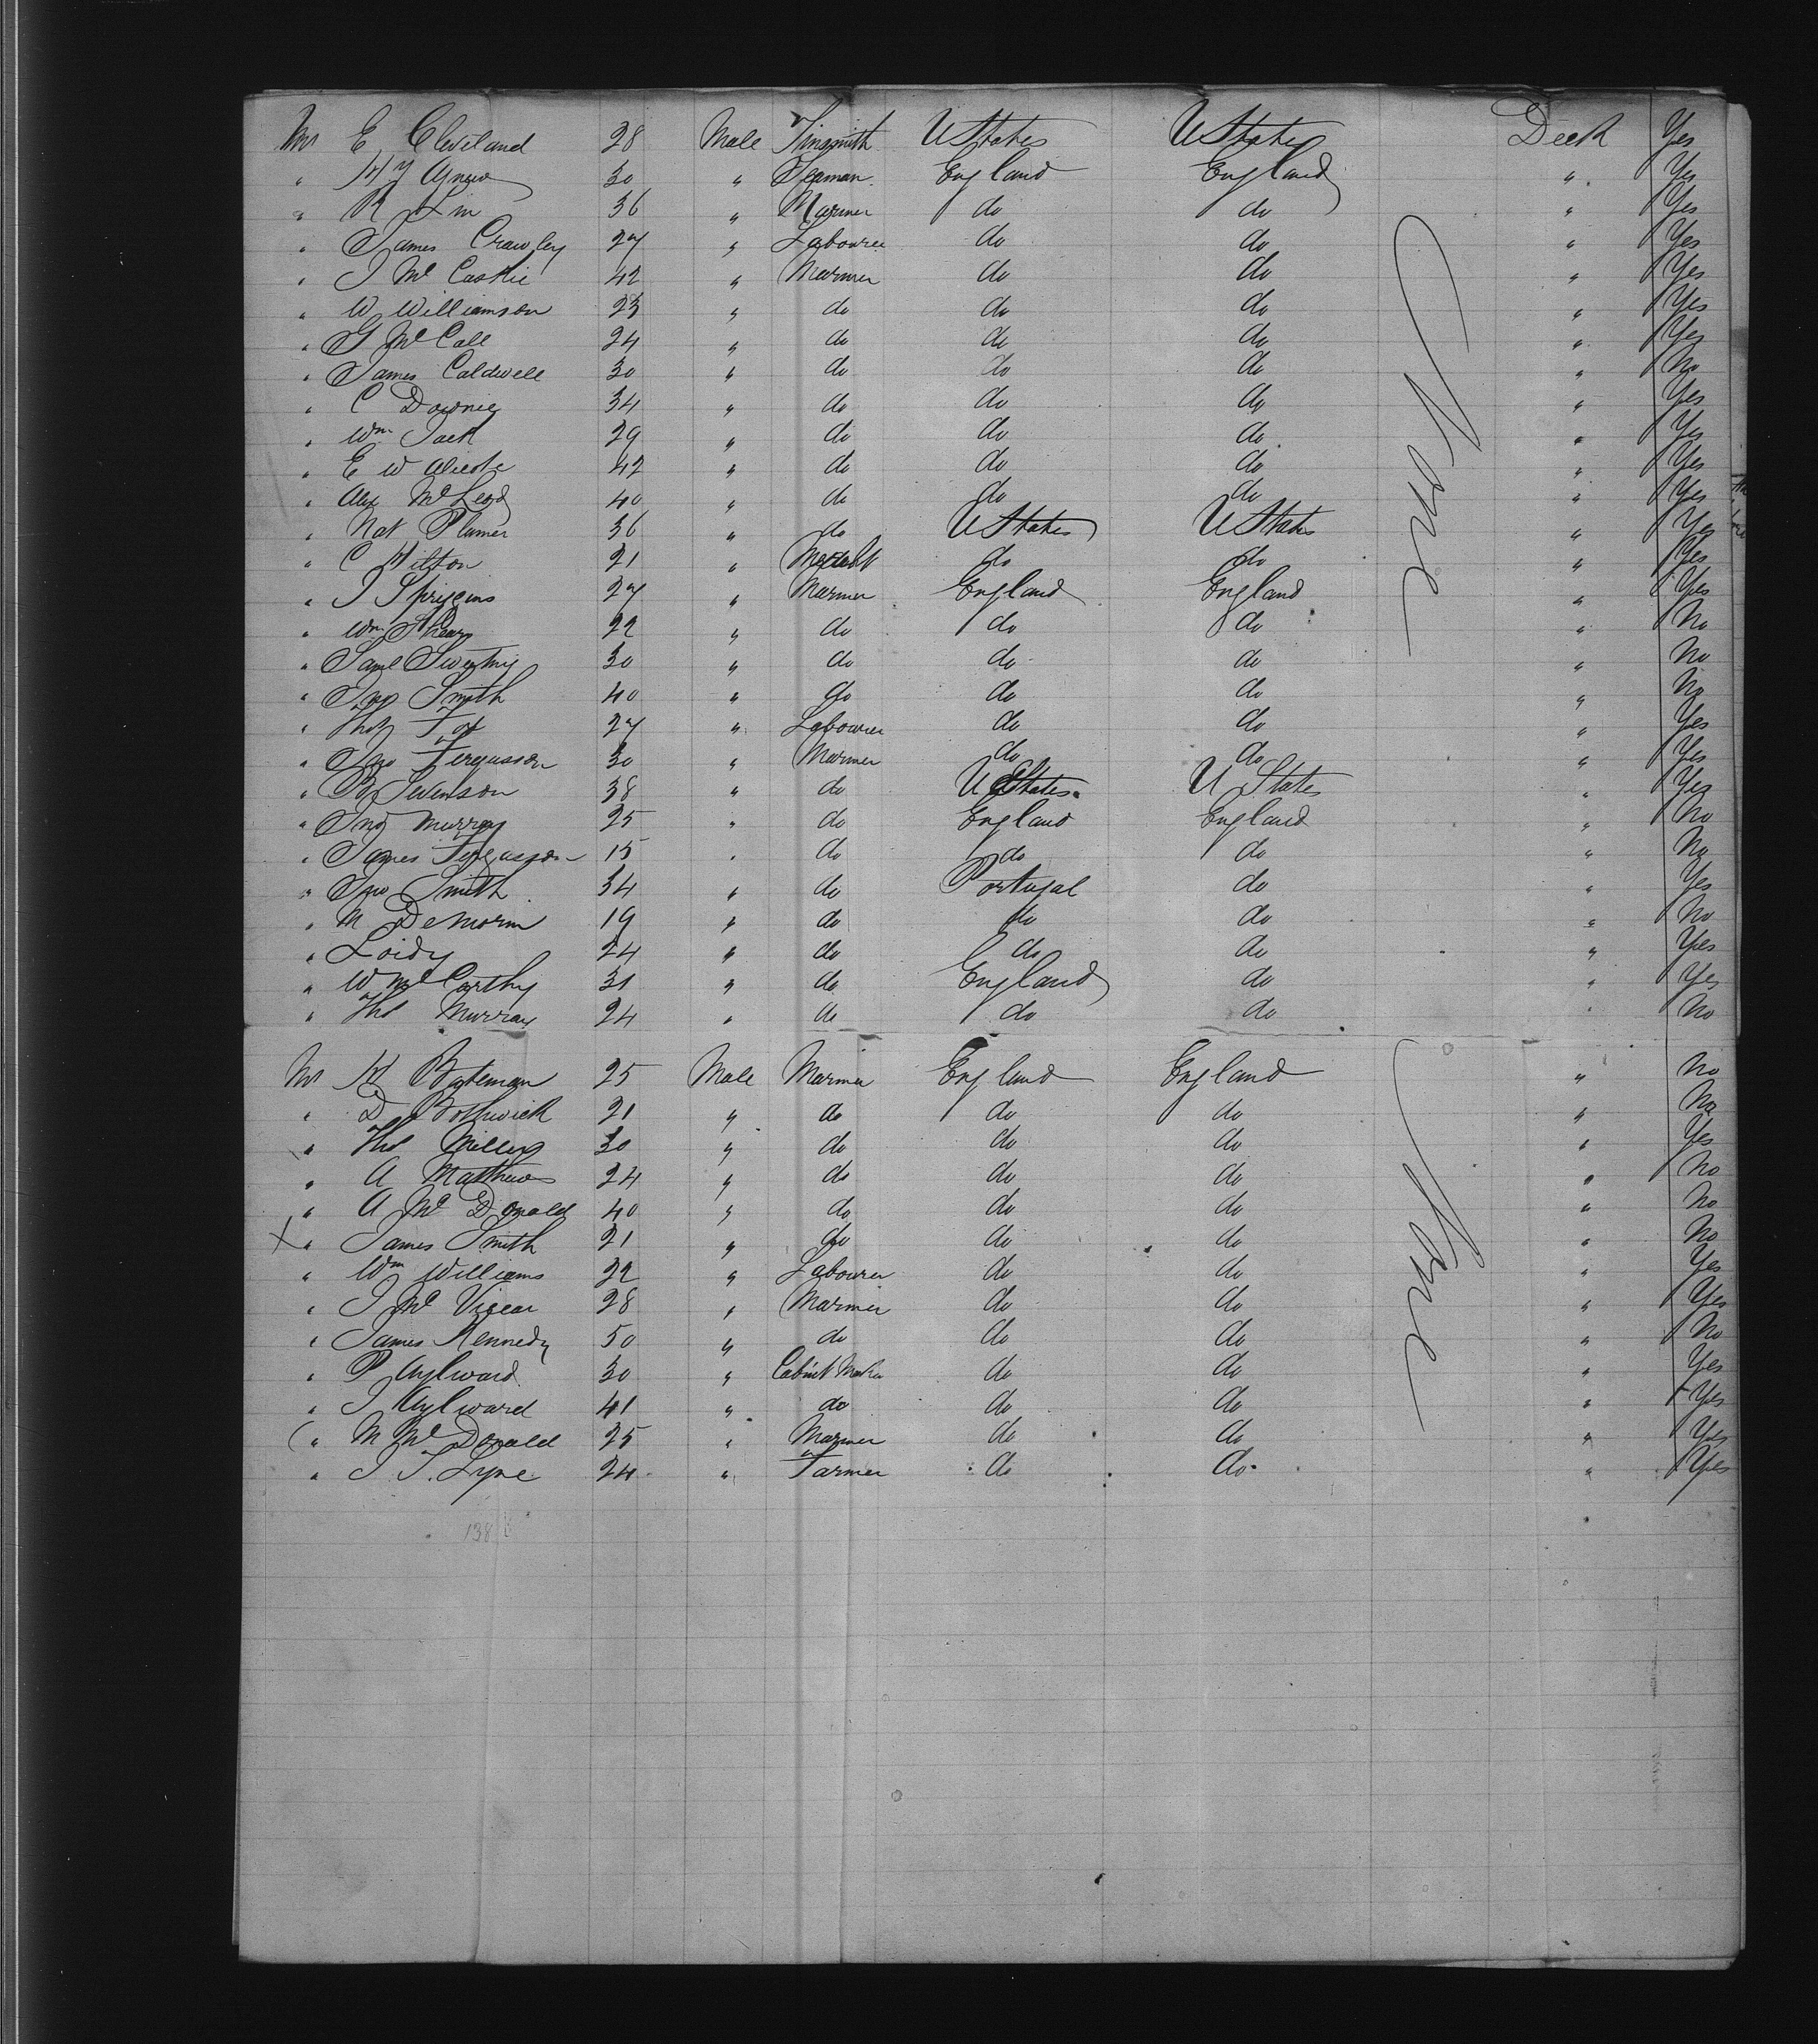 Mr E Cleveland 28 Male Tinsmith U States U States Deck Yes
" Hy Agnew 30 " Seaman England England " Yes
" R Lin 36 " Mariner do do " Yes
" James Crawley 27 " Labourer do do " Yes
" J Mc Caskie 42 " Mariner do do " Yes
" W Williamson 23 " do do do " Yes
" G McCall 24 " do do do " Yes
" James Caldwell 30 " do do do " No
" C Downie 34 " do do do " Yes
" Wm Jack 29 " do do do " Yes
" E W 42 " do do do " Yes
" Alex McLeod 40 " do do do " Yes
" Nat Plumer 36 " do U States U States " Yes
" C Hilton 21 " do do " Yes
" J Spriggins 27 " Mariner England England " Yes
" Wm 22 " do do do " No
" Saml 30 " do do do " No
" Jno Smith 40 " do do do " No
" Thos Fox 27 " Labourer do do " Yes
" Jno Fergusson 30 " Mariner do do " Yes
" B Swenson 38 " do U States U States " Yes
" Jno Murray 25 " do England England " No
" James Fergusson 15 " do do do " No
" Jno Smith 34 " do Portugal do " Yes
" M DeMorin 19 " do do do " No
" Loidy 24 " do do do " Yes
" W McCarthy 31 " do England do " Yes
" Thos Murray 24 " do do do " No
None
Mr H Bateman 25 Male Mariner England England " No
" D Bothwick 21 " do do do " No
" Thos Miller 30 " do do do " Yes
" A Matthews 24 " do do do " No
" A Mc Donald 40 " do do do " No
X " James Smith 21 " do do do " No
" Wm Williams 22 " Labourer do do " Yes
" J Mc Vicear 28 " Mariner do do " Yes
" James Kennedy 50 " do do do " No
" P Aylward 30 " Cabinet Maker do do " Yes
" J Aylward 41 " do do do " Yes
" M McDonald 25 " Mariner do do " Yes
" J. J. Lyne 24 " Farmer do do " Yes
None
138